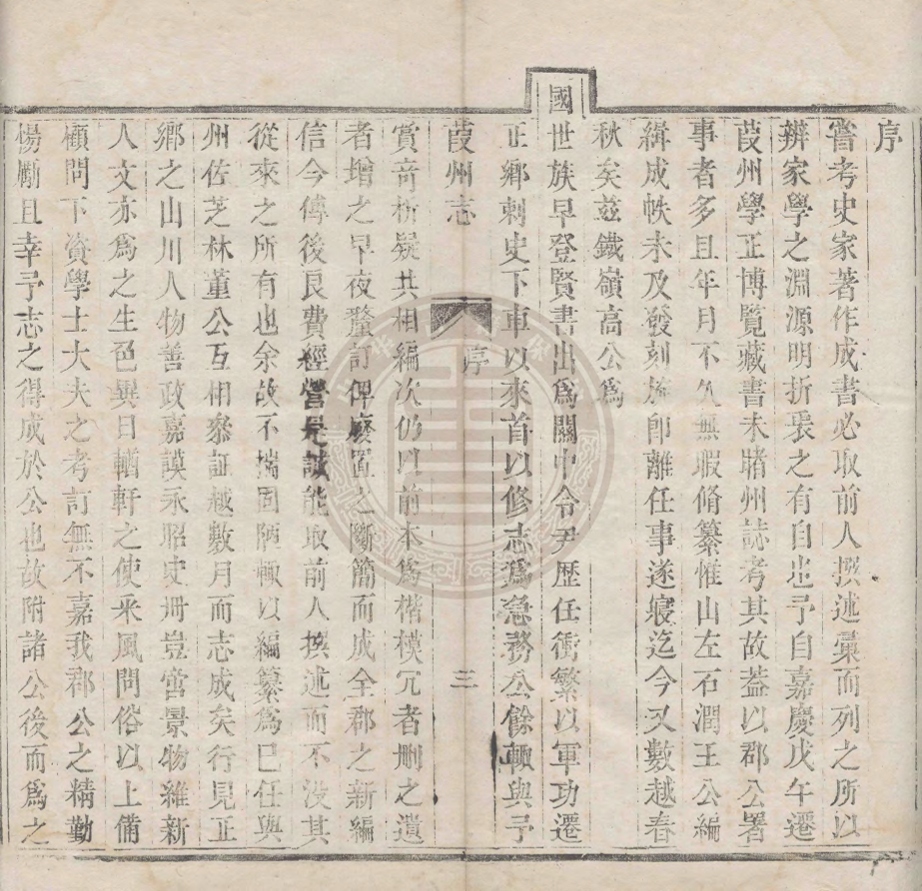 序
嘗考史家著作成書必取前人撰述彙而列之所以
辨家學之淵源明折衷之有自也予自嘉慶戊午遷
葭州學正博覽藏書未睹州誌考其故葢以郡公署
事者多且年月不久無暇脩纂惟山左石潤王公編
緝成帙未及發刻旋卽離任事遂寢迄今又數越春
秋矣兹鐵嶺高公爲
國世族早登賢書出爲關中令尹歷任衝繁以軍功遷
正鄉刺史下車以來首以修志爲急務公餘輙與予
葭州志
序
三
賞奇析疑共相編次仍以前本爲楷模冗者删之遺
者增之早夜釐訂俾廢置之斷簡而成全郡之新編
信今傳後良費經營是誠能取前人撰述而不没其
從來之所有也余故不揣固陋輙以編纂爲已任與
州佐芝林董公互相叅証越數月而志成矣行見正
鄉之山川人物善政嘉謨永昭史册豈啻景物維新
人文亦爲之生色異日輶軒之使采風問俗以上備
顧問下資學士大夫之考訂無不嘉我郡公之精勤
惕勵且幸予志之得成於公也故附諸公後而爲之